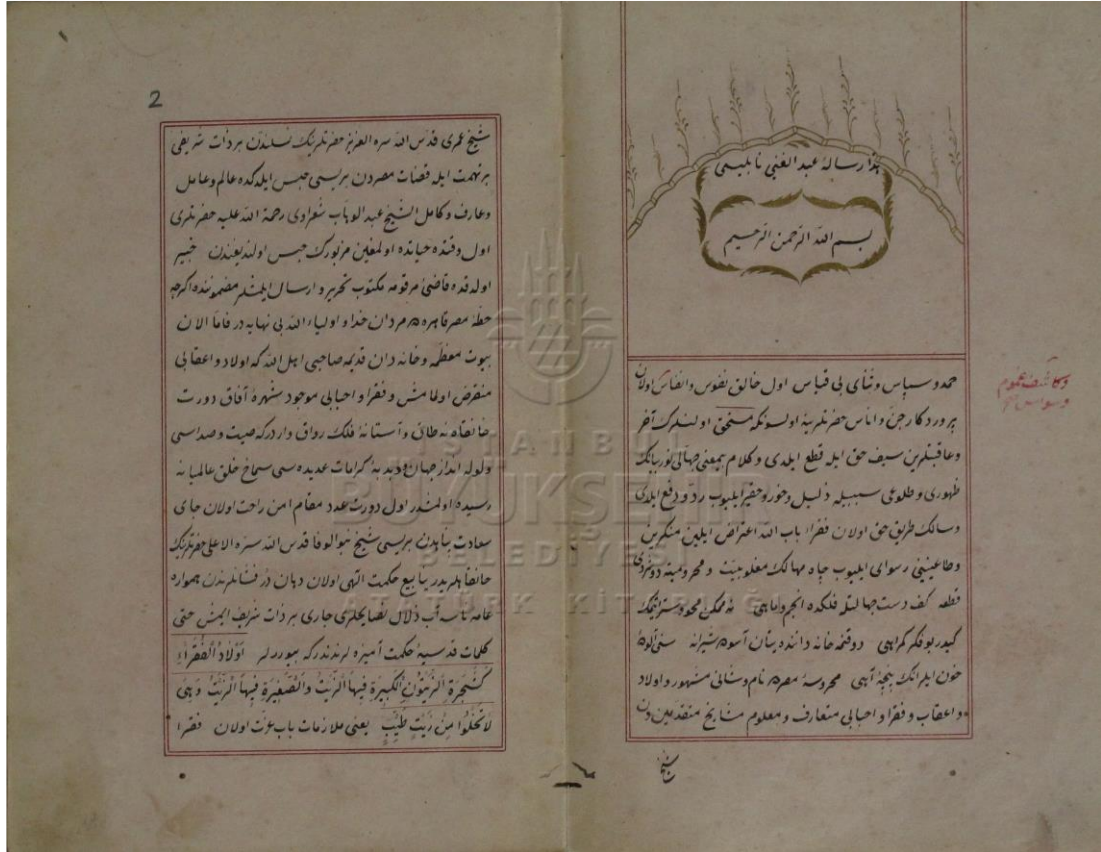 هذا رسالۀ عبد الغني نابلسى
بسم الله الرحمن الرحيم
حمد و سپاس و ثناى بى قياس اول خالق نفوس و انفاس اولان
پرورد كار جن و اناس حضرتلرينه اولسونكه مستحق اولنلرك آخر
و عاقبتلرين سيف حق ايله قطع ايلدى و كلام بمعنى
ظهورى و طلوعى سببيله ذليل و خور و حقير ايليوب رد و دفع ايلدى
و سالك طريق حق اولان فقراء باب الله اعتراض ايلين منكرين
و طاغينى رسواى ايليوب چاه مهالك مغلوبيت و محروميته دوندردى
قطعه كف دست جهالتله فلكده انجم و ماهى نه ممكن محو
كيدر بو فكر كمراهى دوقنمه خانه دانند
خون ايلر انك پنجۀ آهى محروسۀ مصرده نام و شانى مشهور و اولاد
و اعقاب و فقرا و احبابى متعارف و معلوم مشايخ متقدمين دن
شيخ
وكاشف غموم
وسواس
2
شيخ عمرى قدس الله سره العزيز حضرتلرينك نسلندن بر ذات شريفى
بر تهمت ايله قضات مصردن بريسى حبس ايلدكده عالم و عامل
و عارف و كامل الشيخ عبد الوهاب شعراوى رحمة الله عليه حضرتلرى
اول وقتده حياتده اولمغين مزبورك حبس اولنديغندن خبير
اولدقده قاضئ مرقومه مكتوب تحرير و ارسال ايلمشلر مضموننده اكرچه
خطۀ مصر قاهره ده مردان خدا و اولياء الله بى نهايه در فاما الآن
بيوت معظمه و خانه دان قديمه صاحبى اهل الله كه اولاد و اعقابى
منقرض اولمامش و فقرا و احبابى موجود شهرۀ آفاق دورت
خانقاه نه طاق و آستانۀ فلك رواق واردركه صيت و صداسى
ولوله انداز جهان و دبدبۀ كرامات عديده سى سماخ خلق عالميانه
رسيده اولمشدر اول دورت عدد مقام امن راحت اولان جاى
سعادت پناهدن بريسى شيخ بنو الوفا قدس الله سره الاعلى حضرتلرينك
خانقاهلريدر ينابيع حكمت الهى اولان دهان در فشانلرندن همواره
عامۀ ناسه آب زلال نصايحلرى جارى بر ذات شريف ايمش حتى
كلمات قدسيۀ حكمت آميزه لرندندركه بيوررلر اَوْلَادُ الْفُقَرَاءِ
كَشَجَرَةِ الزَّيْتُونِ الْكَبِيرَةِ فِيهَا الزَّيْتُ وَالصَّغِيرَةِ فِيهَا الزَّيْتُ وَهِىَ
لَا تَخْلُوا مِنْ زَيْتٍ طَيِّبٍ يعنى ملازمات باب عزت اولان فقرا
İSTANBUL
BÜYÜKŞEHİR
BELEDİYESİ
ATATÜRK KİTAPLIĞI